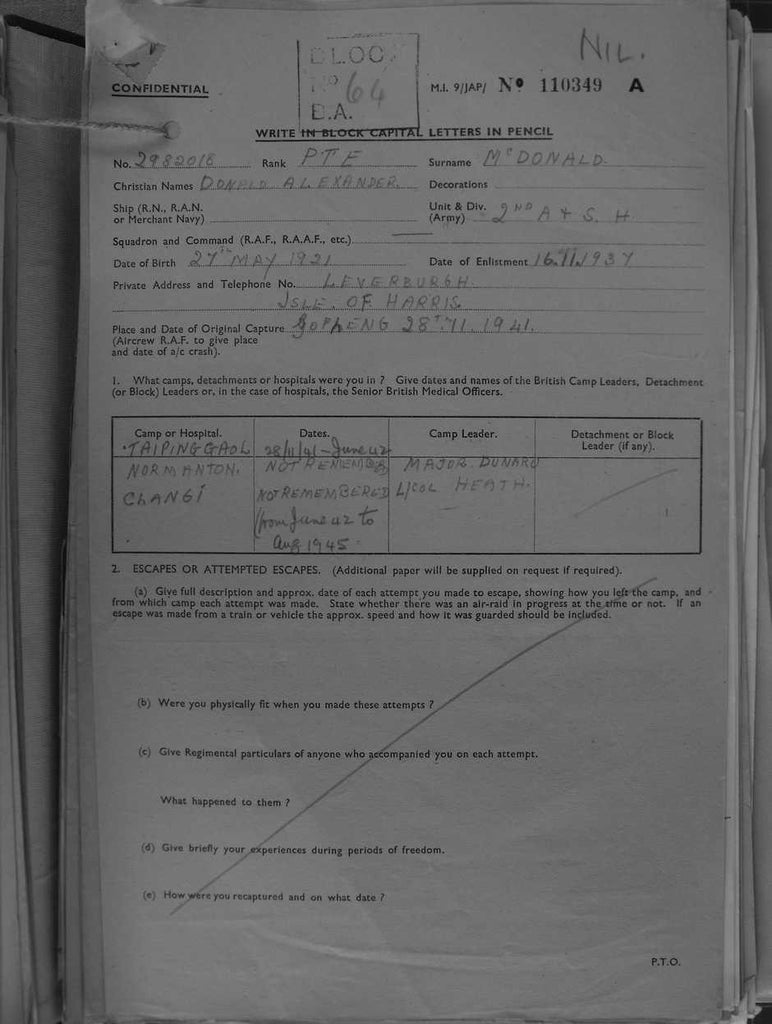 NIL.
BLOC
No 64
B.A.
CONFIDENTIAL
M.I. 9/JAP/ No 110349 A
WRITE IN BLOCK CAPITAL LETTERS IN PENCIL
No. 2982018 Rank PTE Surname McDONALD.
Christian Names DONALD ALEXANDER. Decorations
Ship (R.N., R.A.N. or Merchant Navy) Unit & Div. (Army) 2ND A & S. H
Squadron and Command (R.A.F., R.A.A.F., etc.)
Date of Birth 27th MAY 1921 Date of Enlistment 16.11.1937
Private Address and Telephone No. LEVERBURGH.
ISLE. OF HARRIS
Place and Date of Original Capture GOPHENG 28TH.11.1941.
(Aircrew R.A.F. to give place
and date of a/c crash).
1. What camps, detachments or hospitals were you in ? Give dates and names of the British Camp Leaders, Detachment
(or Block) Leaders or, in the case of hospitals, the Senior British Medical Officers.
Camp or Hospital. Dates. Camp Leader. Detachment or Block Leader (if any).
TAIPING GAOL 28/11/41 - June 42
NORMANTON. NOT REMEMB MAJOR
CHANGI NOT REMEMBERED L/COL HEATH.
(from June 42 to
Aug 1945
2. ESCAPES OR ATTEMPTED ESCAPES. (Additional paper will be supplied on request if required).
(a) Give full description and approx. date of each attempt you made to escape, showing how you left the camp, and
from which camp each attempt was made. State whether there was an air-raid in progress at the time or not. If an
escape was made from a train or vehicle the approx. speed and how it was guarded should be included.
(b) Were you physically fit when you made these attempts ?
(c) Give Regimental particulars of anyone who accompanied you on each attempt.
What happened to them ?
(d) Give briefly your experiences during periods of freedom.
(e) How were you recaptured and on what date ?
P.T.O.